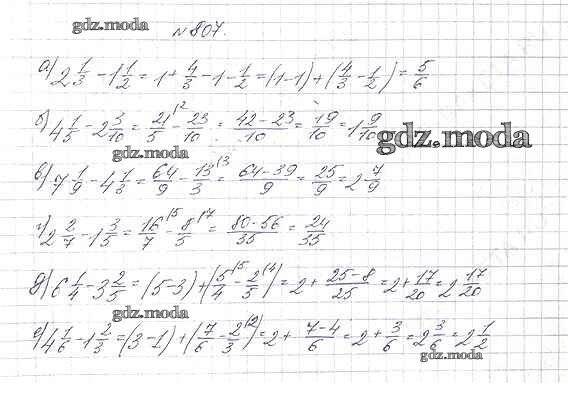 gdz.moda
№ 807.
а) 2 1/3 - 1 1/2 = 1 + 4/3 - 1 - 1/2 = (1-1) + (4/3 - 1/2) = 5/6
б) 4 1/5 - 2 3/10 = 21/5 (2 - 23/10 = (42-23)/10 = 19/10 = 1 9/10
gdz.moda
gdz.moda
в) 7 1/9 - 4 1/3 = 64/9 - 13/3 (3 = (64-39)/9 = 25/9 = 2 7/9
г) 2 2/7 - 1 3/5 = 16/7 (5 - 8/5 (7 = (80-56)/35 = 24/35
д) 6 1/4 - 3 2/5 = (5-3) + (5/4 (5 - 2/5 (4) = 2 + (25-8)/25 = 2 + 17/20 = 2 17/20
gdz.moda
е) 4 1/6 - 1 2/3 = (3-1) + (7/6 - 2/3 (2) = 2 + (7-4)/6 = 2 + 3/6 = 2 3/6 = 2 1/2
gdz.moda